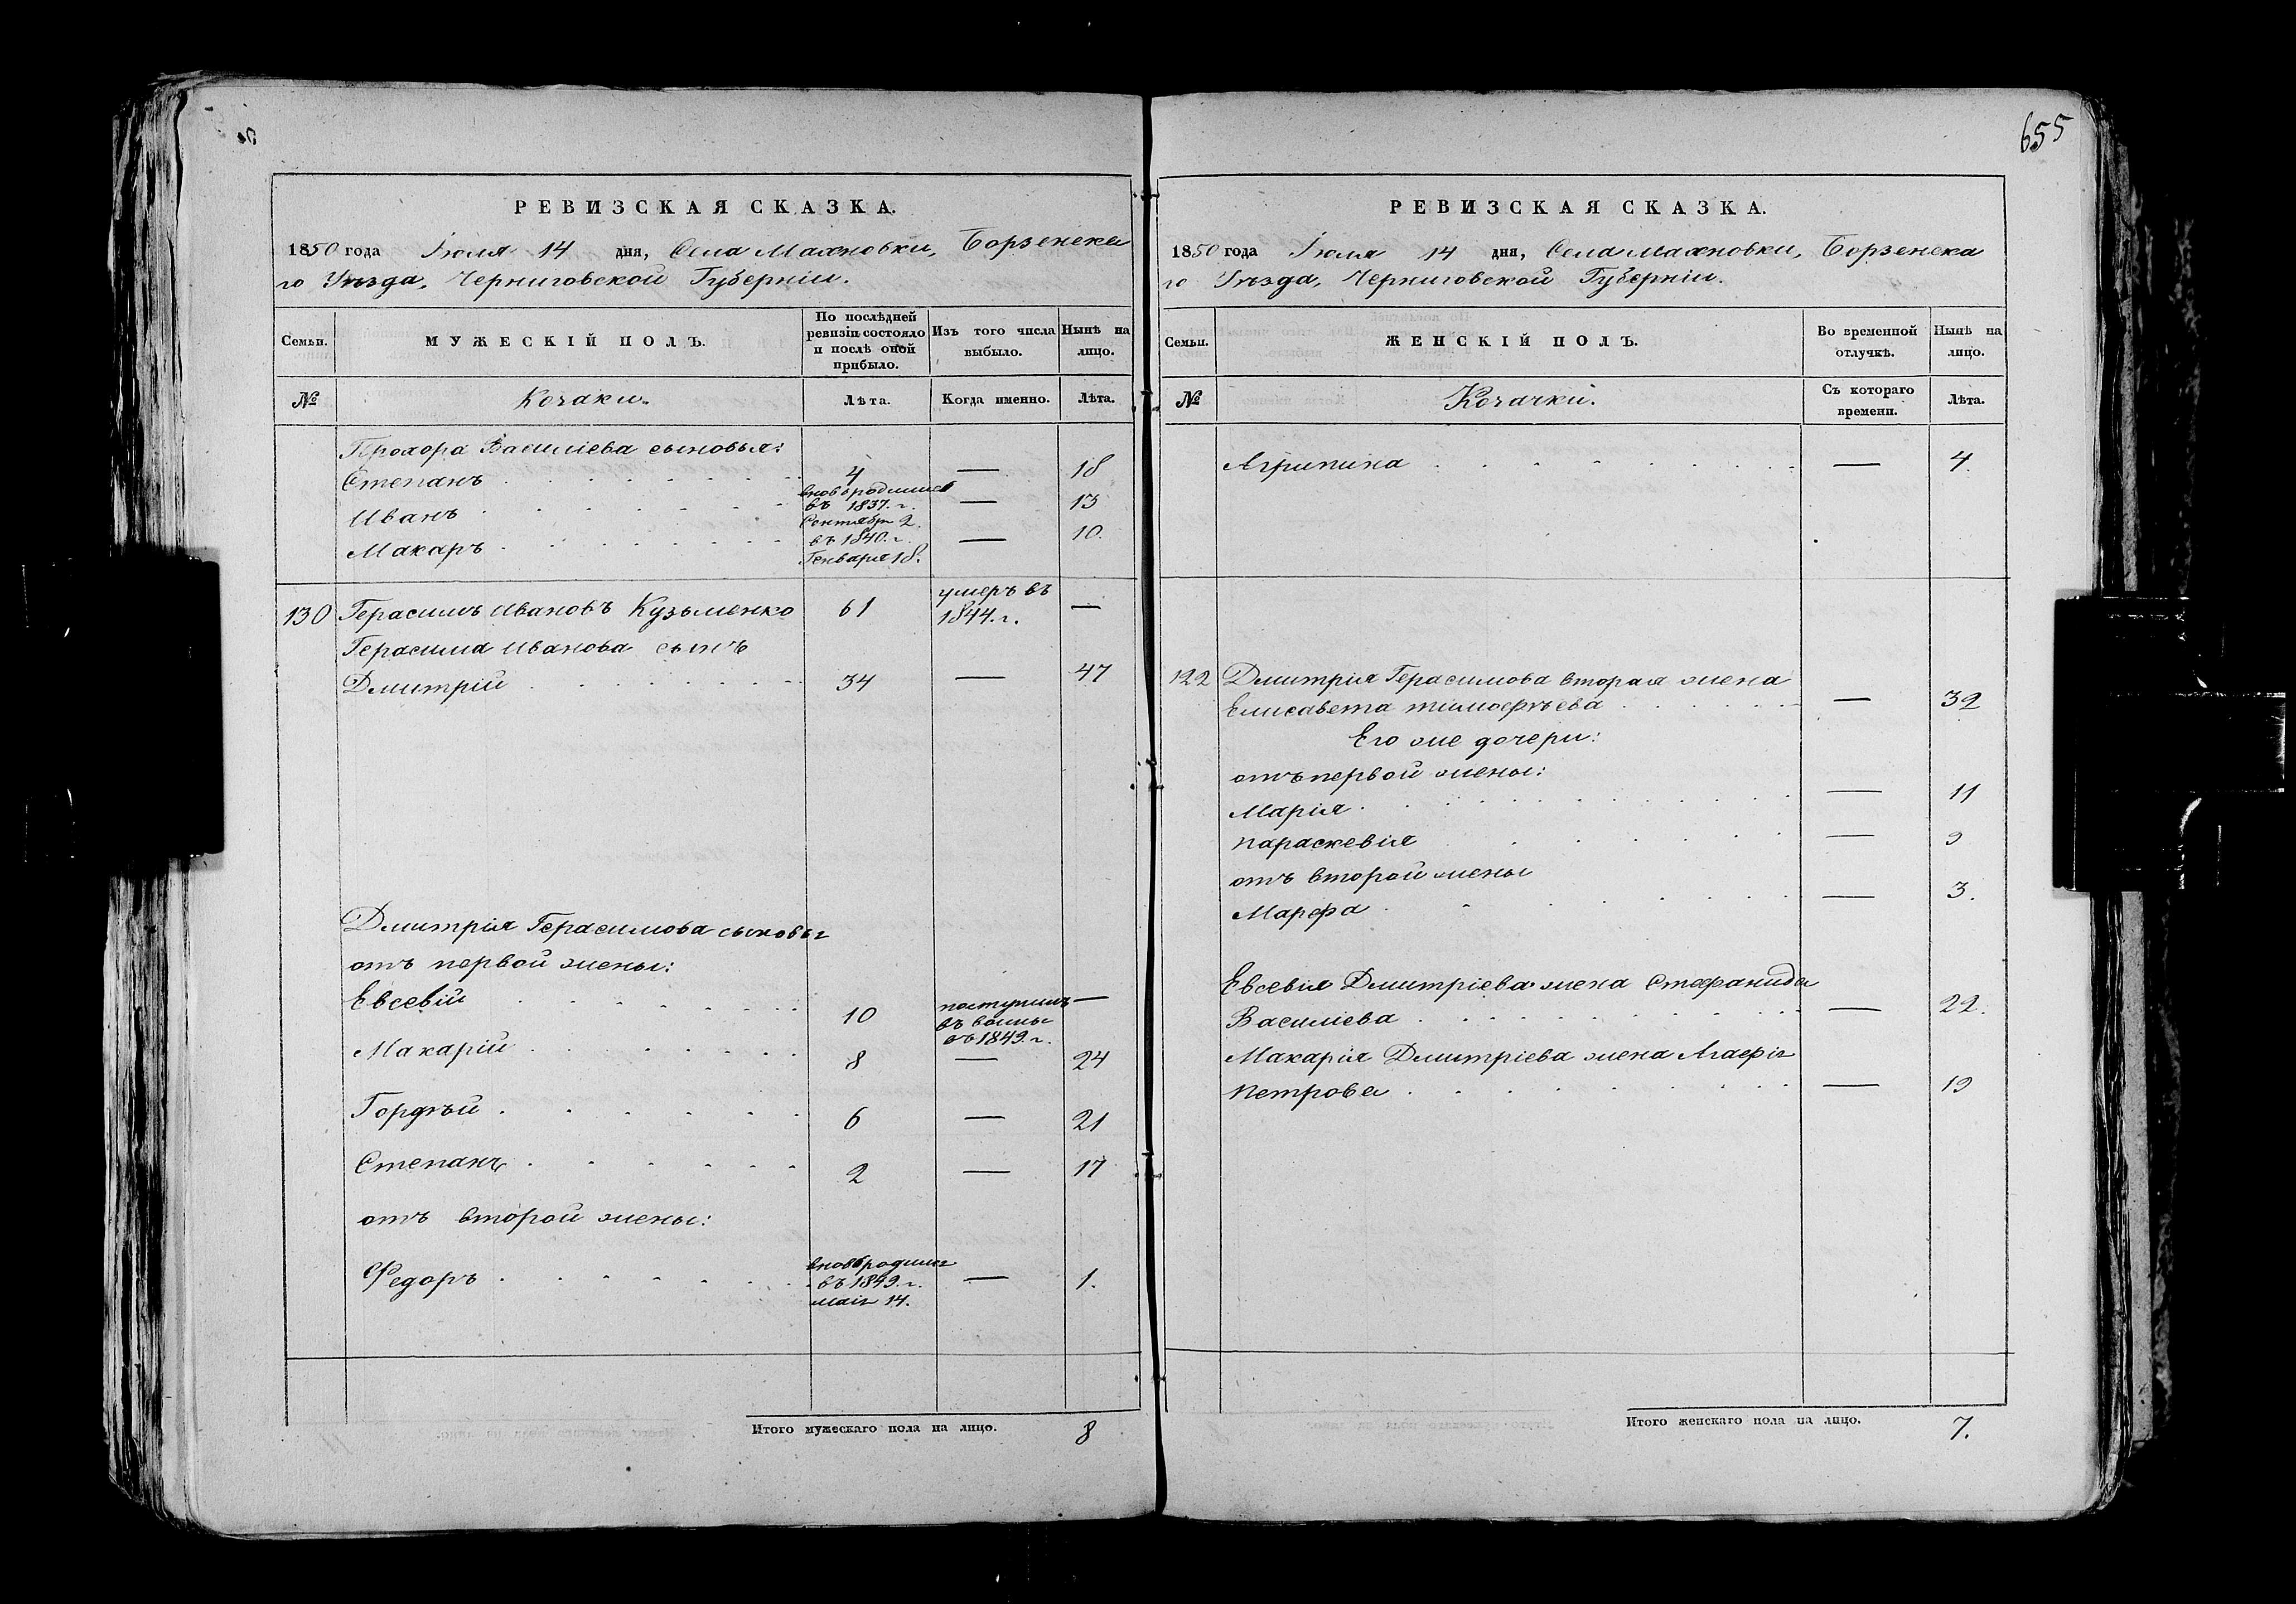 655
РЕВИЗСКАЯ СКАЗКА.
1850 года Іюля 14 дня, Села Махновки, Борзенска
го Уѣзда, Черниговской Губерніи.
Семьи.
МУЖЕСКІЙ ПОЛЪ.
По послѣдней
ревизіи состояло
и послѣ оной
прибыло.
Изъ того числа
выбыло.
Нынѣ на
лицо.
№
Козаки.
Лѣта.
Когда именно.
Лѣта.
Прохора Василіева сыновья:
Степанъ 4 — 18
вновь родился
Иванъ въ 1837. г. — 13
Сентябр 2.
Макаръ въ 1840. г. — 10.
Генваря 18.
130 Герасимъ Ивановъ Кузьменко 61 умеръ въ —
1844. г.
Герасима Иванова сынъ
Дмитрій 34 — 47
Дмитрія Герасимова сыновья
отъ первой жены:
Евсевій 10 поступилъ —
въ
въ 1849. г.
Макарій 8 — 24
Гордѣй 6 — 21
Степанъ 2 — 17
отъ второй жены:
вновь родился
Федоръ въ 1849. г. — 1.
маія 14.
Итого мужескаго пола на лицо. 8
РЕВИЗСКАЯ СКАЗКА.
1850 года Іюля 14 дня, Села Махновки, Борзенска
го Уѣзда, Черниговской Губерніи.
Семьи.
ЖЕНСКІЙ ПОЛЪ.
Во временной
отлучкѣ.
Нынѣ на
лицо.
№
Козачки.
Съ котораго
времени.
Лѣта.
Агрипина — 4.
122 Дмитрія Герасимова вторая жена
Елисавета тимофѣева — 32
Его же дочери:
отъ первой жены:
Марія — 11
Параскевія — 9
отъ второй жены
Марфа — 3.
Евсевія Дмитріева жена Стефанида
Василіева — 22.
Макарія Дмитріева жена Агафія
Петрова — 19
Итого женскаго пола на лицо. 7.